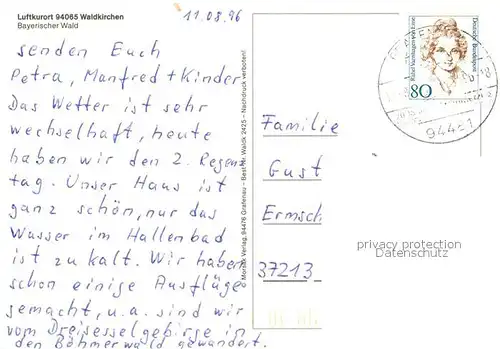 Luftkurort 94065 Waldkirchen
Bayerischer Wald
11.08.96
senden Euch
Petra, Manfred + Kinder
Das Wetter ist sehr
wechselhaft, heute
haben wir den 2. Regen-
tag. Unser Haus ist
ganz schön, nur das
Wasser im Hallenbad
ist zu kalt. Wir haben
schon einige Ausflüge
gemacht, u.a. sind wir
vom Dreisesselgebirge in
den Böhmerwald gewandert.
Verlag, 94476 Grafenau – Best.-Nr. Waldk. 2425 – Nachdruck verboten!
Deutsche Bundespost
Rahel Varnhagen von Ense
80
94481
Familie
Gust
Ermsch
37213
privacy protection
Datenschutz